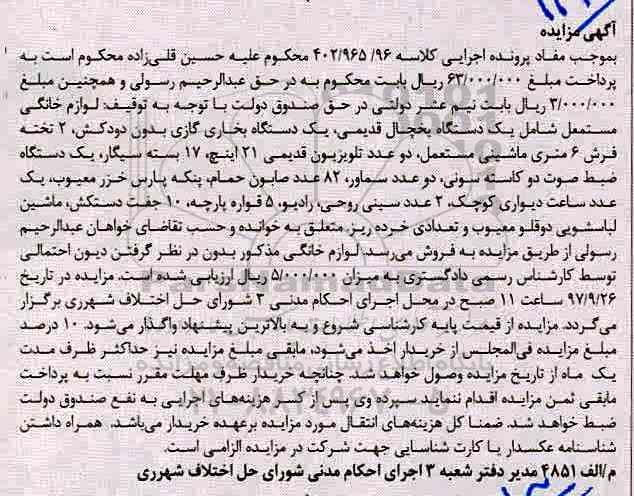 آگهی مزایده
بموجب مفاد پرونده اجرایی کلاسه ۹۶/ ۴۰۲/۹۶۵ محکوم علیه حسین قلی‌زاده محکوم است به
پرداخت مبلغ ۶۳/۰۰۰/۰۰۰ ریال بابت محکوم به در حق عبدالرحیم رسولی و همچنین مبلغ
۳/۰۰۰/۰۰۰ ریال بابت نیم عشر دولتی در حق صندوق دولت با توجه به توقیف: لوازم خانگی
مستعمل شامل یک دستگاه یخچال قدیمی، یک دستگاه بخاری گازی بدون دودکش، ۲ تخته
فرش ۶ متری ماشینی مستعمل، دو عدد تلویزیون قدیمی ۲۱ اینچ، ۱۷ بسته سیگار، یک دستگاه
ضبط صوت دو کاسته سونی، دو عدد سماور، ۸۲ عدد صابون حمام، پنکه پارس خزر معیوب، یک
عدد ساعت دیواری کوچک، ۲ عدد سینی روحی، رادیو، ۵ قواره پارچه، ۱۰ جفت دستکش، ماشین
لباسشویی دوقلو معیوب و تعدادی خرده ریز. متعلق به خوانده و حسب تقاضای خواهان عبدالرحیم
رسولی از طریق مزایده به فروش می‌رسد. لوازم خانگی مذکور بدون در نظر گرفتن دیون احتمالی
توسط کارشناس رسمی دادگستری به میزان ۵/۰۰۰/۰۰۰ ریال ارزیابی شده است. مزایده در تاریخ
۹۷/۹/۲۶ ساعت ۱۱ صبح در محل اجرای احکام مدنی ۳ شورای حل اختلاف شهرری برگزار
می‌گردد. مزایده از قیمت پایه کارشناسی شروع و به بالاترین پیشنهاد واگذار می‌شود. ۱۰ درصد
مبلغ مزایده فی‌المجلس از خریدار اخذ می‌شود، مابقی مبلغ مزایده نیز حداکثر ظرف مدت
یک ماه از تاریخ مزایده وصول خواهد شد. چنانچه خریدار ظرف مهلت مقرر نسبت به پرداخت
مابقی ثمن مزایده اقدام ننماید سپرده وی پس از کسر هزینه‌های اجرایی به نفع صندوق دولت
ضبط خواهد شد. ضمنا کل هزینه‌های انتقال مورد مزایده برعهده خریدار می‌باشد. همراه داشتن
شناسنامه عکسدار یا کارت شناسایی جهت شرکت در مزایده الزامی است.
م/الف ۴۸۵۱ مدیر دفتر شعبه ۳ اجرای احکام مدنی شورای حل اختلاف شهرری